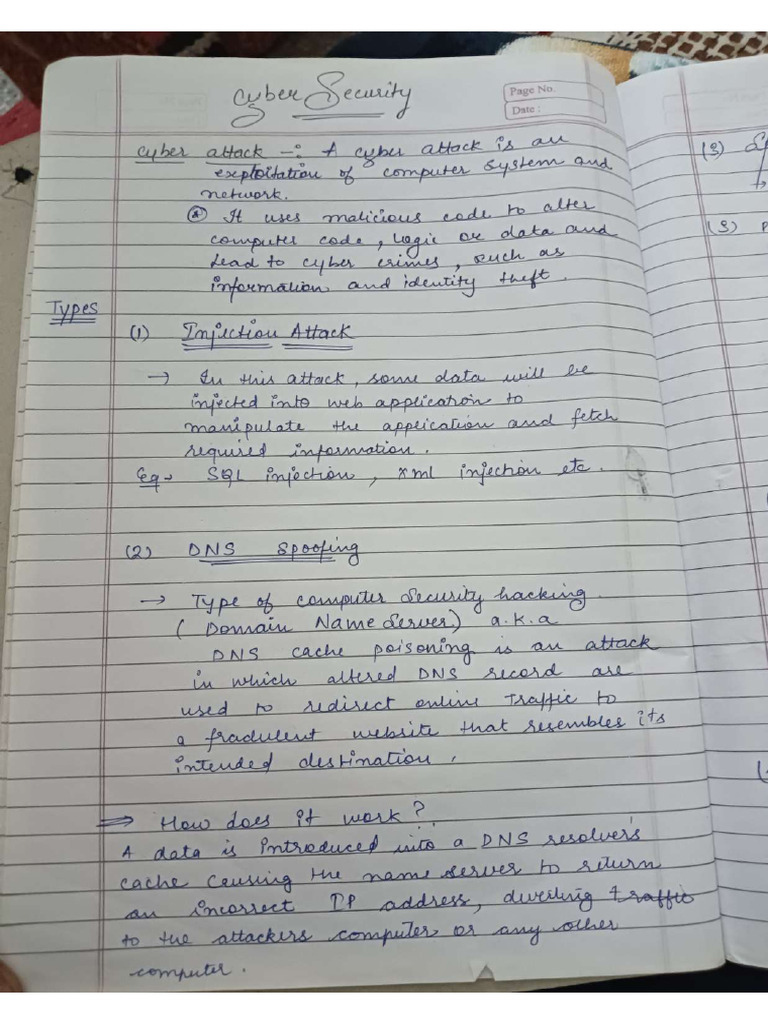 Cyber Security
Page No.
Date :
Cyber attack -: A cyber attack is an
exploitation of computer system and
network.
It uses malicious code to alter
computer code, logic or data and
lead to cyber crimes, such as
information and identity theft.
Types
(1) Injection Attack
→ In this attack, some data will be
injected into web application to
manipulate the application and fetch
required information.
Eg → SQL injection, xml injection etc.
(2) DNS Spoofing
→ Type of computer security hacking.
( Domain Name Server) a.k.a
DNS cache poisoning is an attack
in which altered DNS record are
used to redirect online traffic to
a fradulent website that resembles its
intended destination.
⇒ How does it work?
A data is introduced into a DNS resolver's
cache causing the name server to return
an incorrect IP address, traffic
to the attackers computer or any other
computer.
(3)
(3)